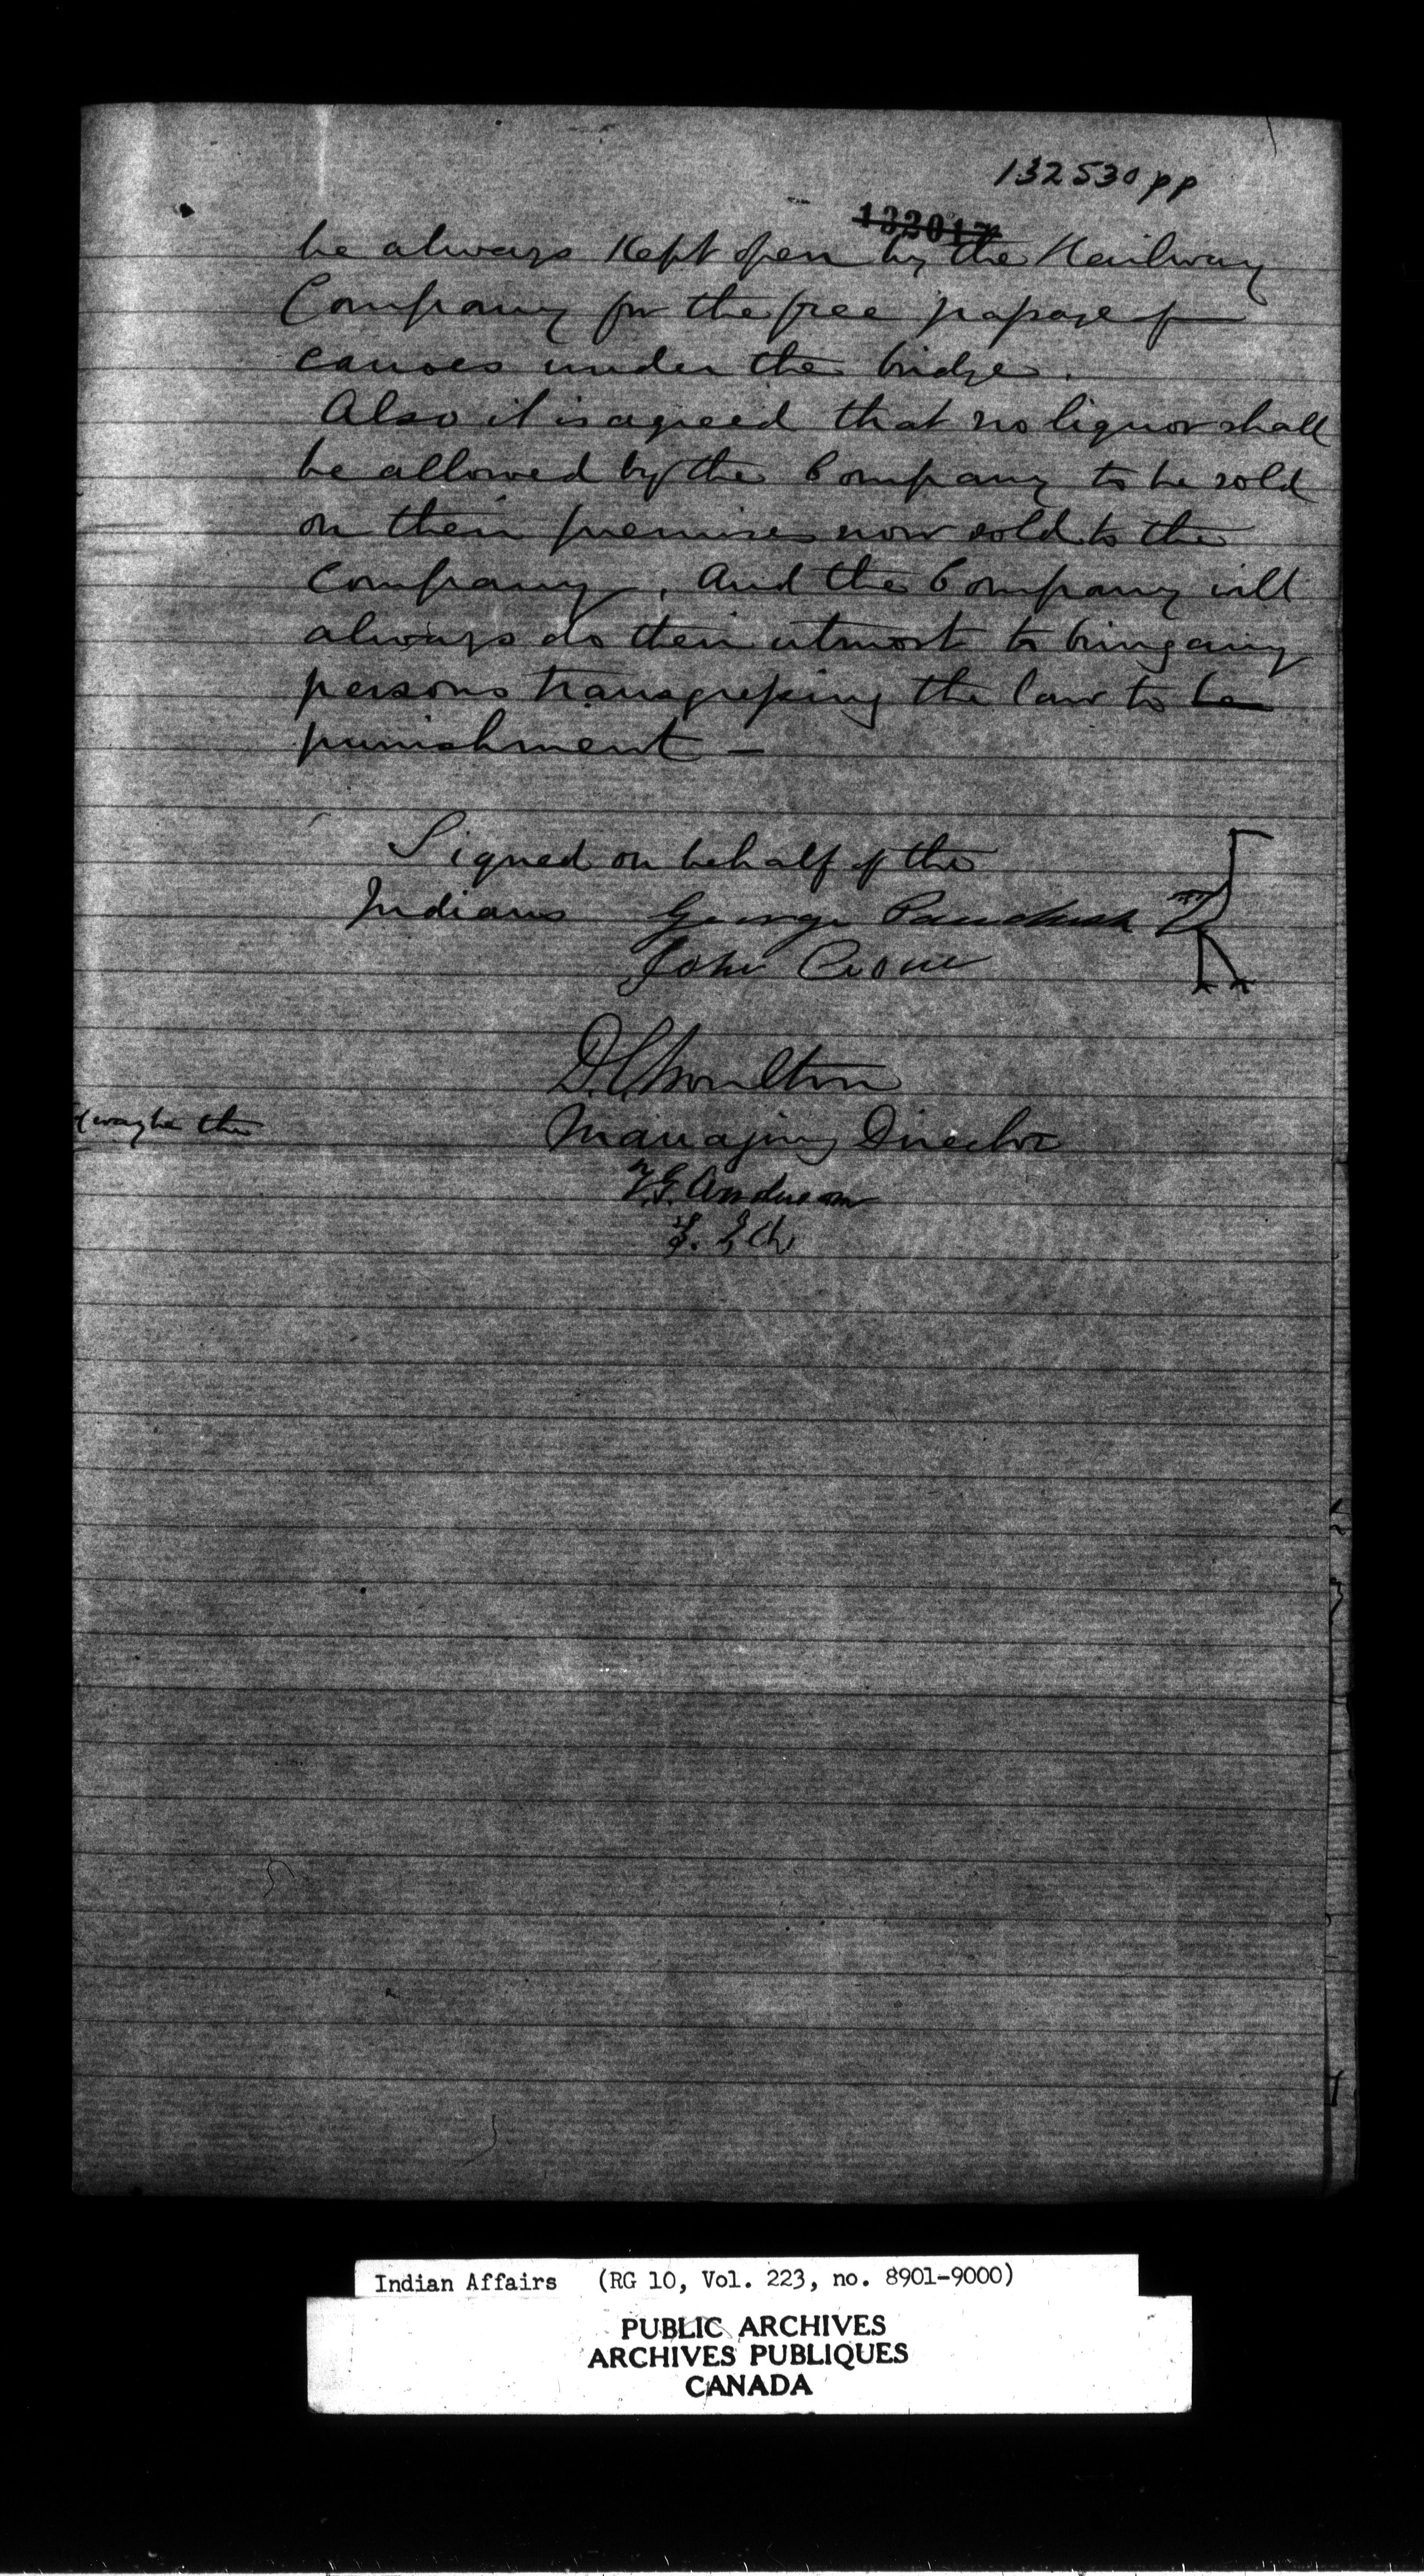 132530 pp
132017
be always Kept open by the Railway
Company for the free passage of
canoes under the bridge.
Also it is agreed that no liquor shall
be allowed by the Company to be sold
on their premises now sold to the
Company. And the Company will
always do their utmost to bring any
persons transgressing the law to be
punishment —
Signed on behalf of the
Indians George Paudash
John Crow
Managing Director
T.G. Anderson
way be the
Indian Affairs (RG 10, Vol. 223, no. 8901-9000)
PUBLIC ARCHIVES
ARCHIVES PUBLIQUES
CANADA